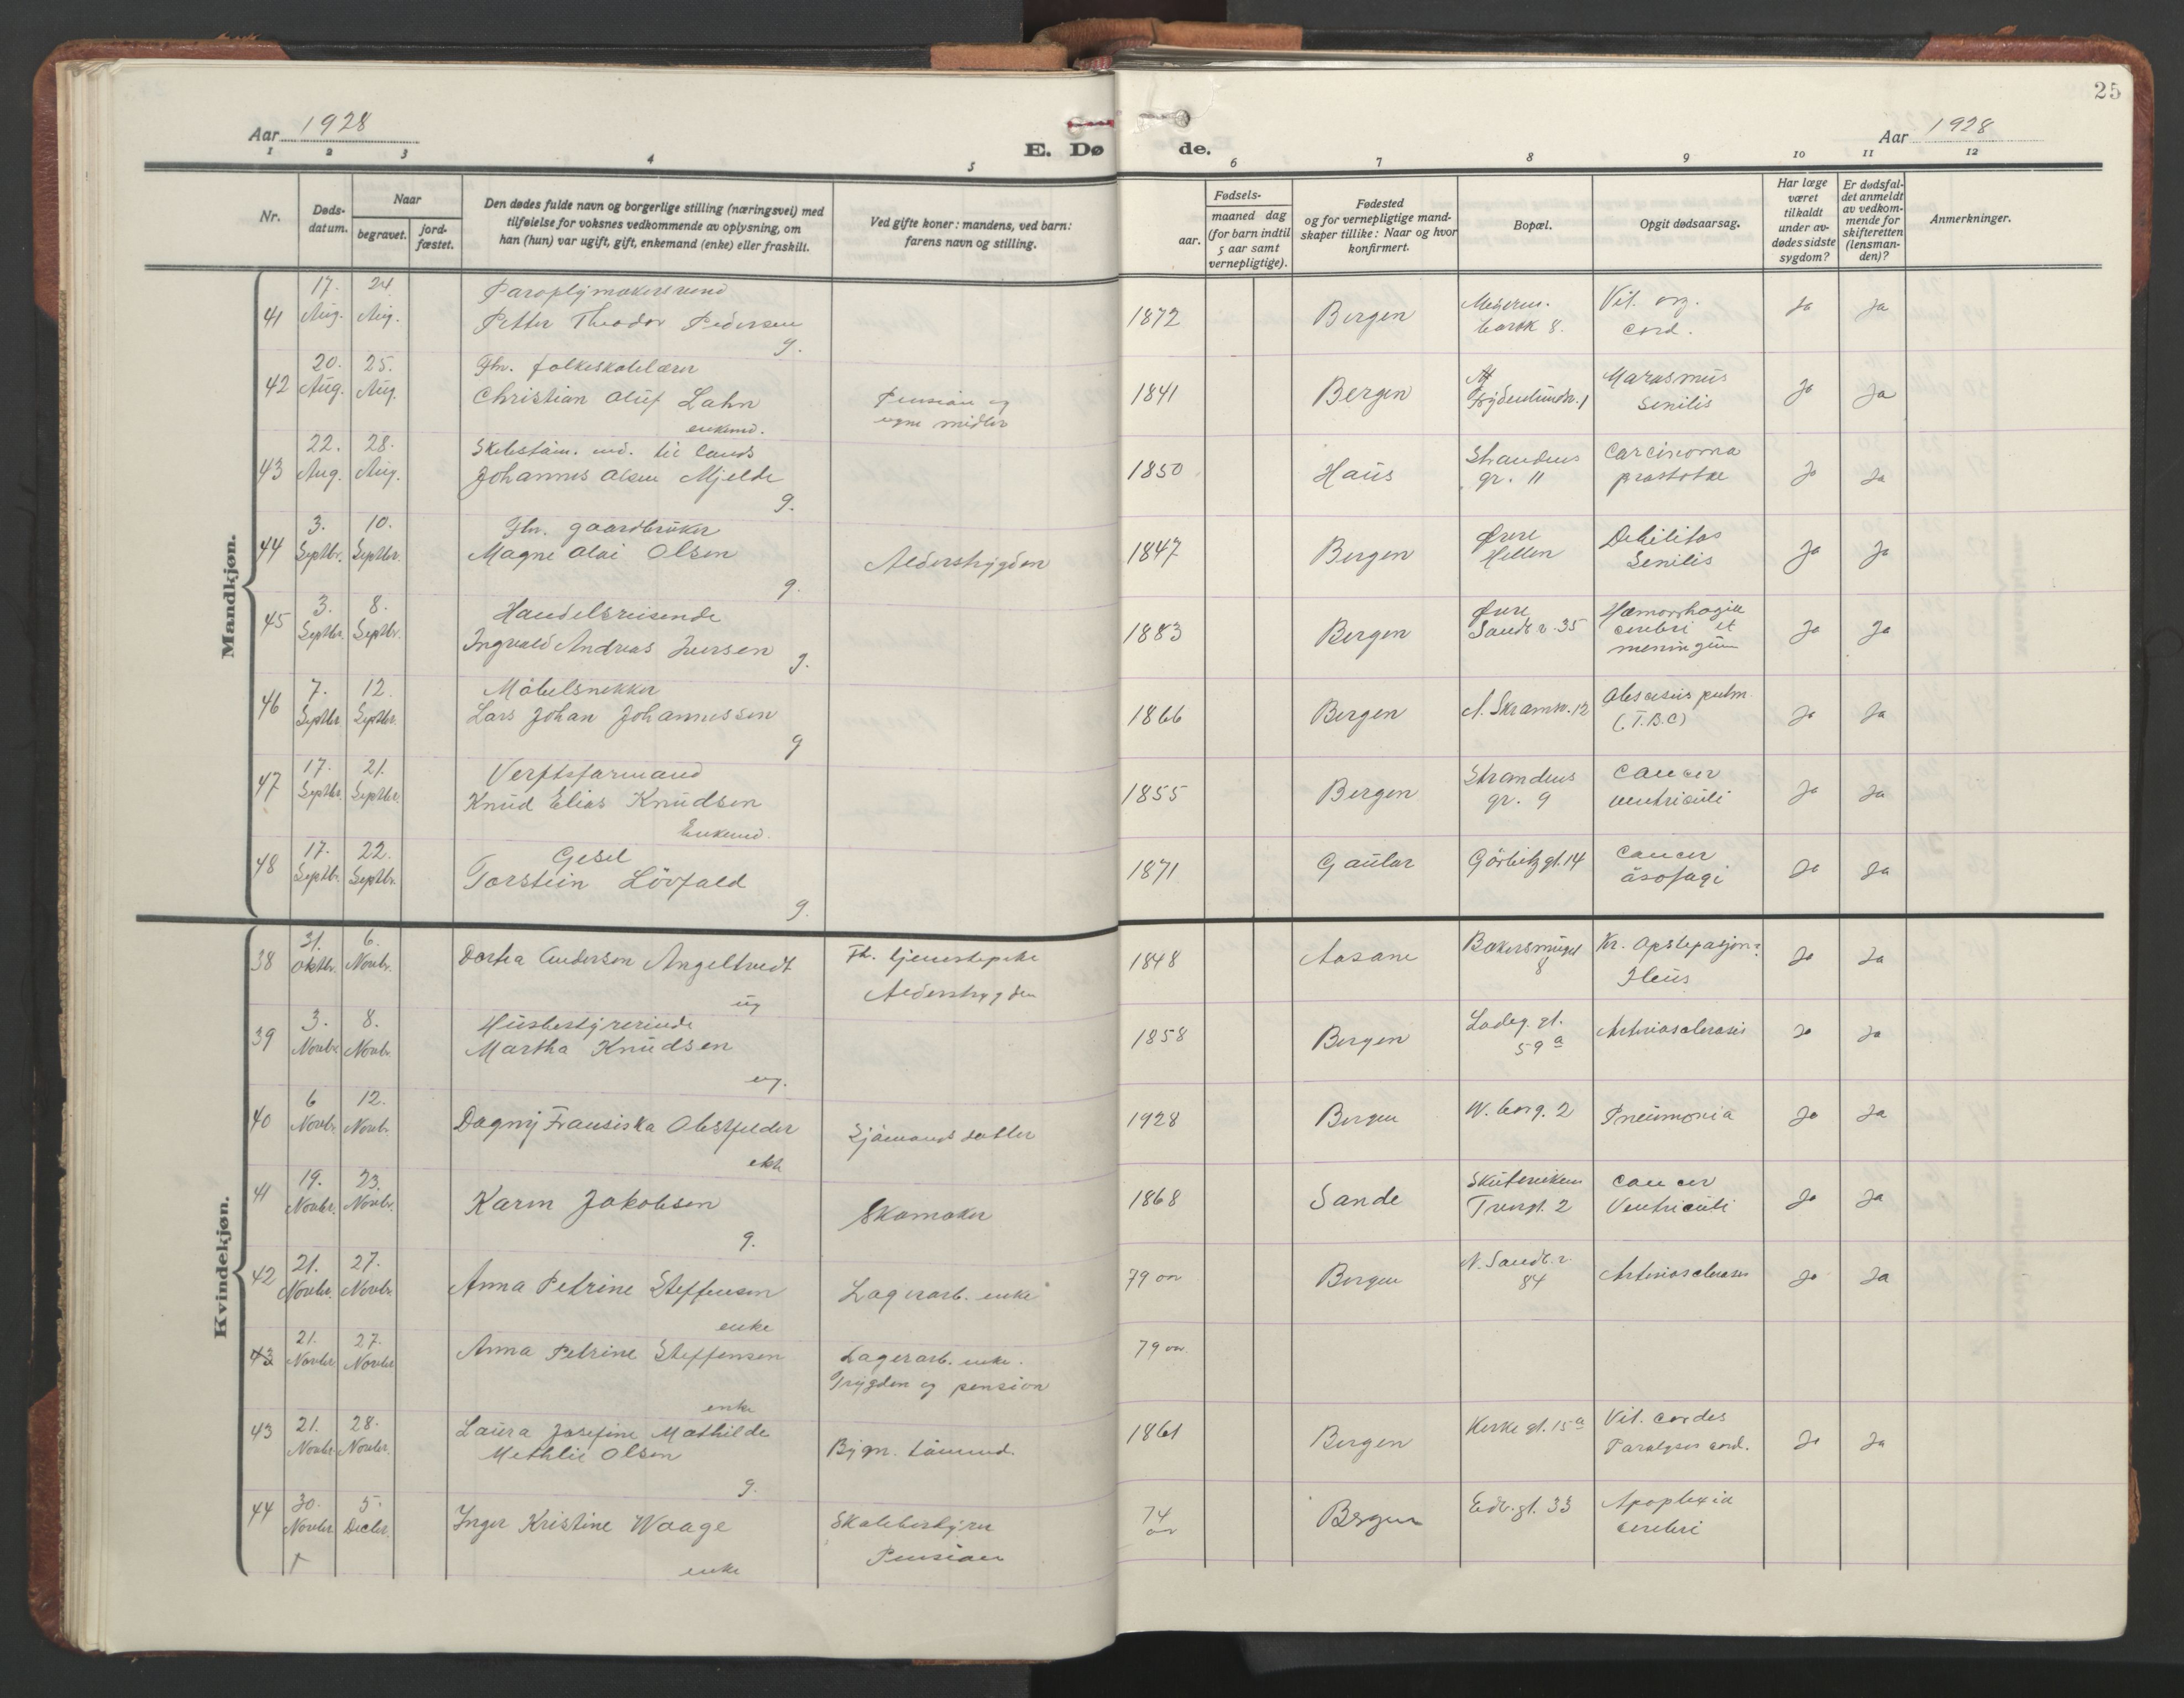 25
Aar 1928
E. Døde.
Aar 1928
1 2 3 4 5 6 7 8 9 10 11 12
Nr.
Døds-datum.
Naar
begravet.
jord-fæstet.
Den dødes fulde navn og borgerlige stilling (næringsvei) med
tilføielse for voksnes vedkommende av oplysning, om
han (hun) var ugift, gift, enkemand (enke) eller fraskilt.
Ved gifte koner: mandens, ved barn:
farens navn og stilling.
Fødsels-
aar.
maaned dag
(for barn indtil
5 aar samt
vernepligtige).
Fødested
og for vernepligtige mand-
skaper tillike: Naar og hvor
konfirmert.
Bopæl.
Opgit dødsaarsag.
Har læge
været
tilkaldt
under av-
dødes sidste
sygdom?
Er dødsfal-
det anmeldt
av vedkom-
mende for
skifteretten
(lensman-
den)?
Anmerkninger.
Mandkjøn.
41 17. Aug. 24 Aug. Paraplymakersvend
Petter Theodor Pedersen g. 1872 Bergen 8. Vit. org. cord. Ja Ja
42 20. Aug. 25. Aug. Fhv. folkeskolelærer
Christian Oluf Lahn enkem. Pension og egne midler 1841 Bergen Marasmus Senilis Ja Ja
43 22. Aug. 28. Aug. til lands
Johannes Olsen Mjelde g. 1850 Haus Strandens gr. 11 Carcinoma prostatae Ja Ja
44 3. Septbr. 10. Septbr. Fhv. gaardbruker
Magne Olai Olsen g. Alderstrygden 1847 Bergen Øvre Hellen Debilitas Senilis Ja Ja
45 3. Septbr. 8. Septbr. Handelsreisende
Ingvald Andreas Iversen g. 1883 Bergen Øvre Sandv. 35 Hæmorrhagia cerebri et meningum Ja Ja
46 7. Septbr. 12. Septbr. Möbelsnekker
Lars Johan Johannessen g 1866 Bergen N. Skramsv. 12 Abscesus pulm. (T.B.C) Ja Ja
47 17. Septbr. 21. Septbr. Verftsformand
Knud Elias Knudsen Enkem. 1855 Bergen Strandens gr. 9 Cancer ventriculi Ja Ja
48 17. Septbr. 22. Septbr. Gesel
Torstein Lövfald g. 1871 Gaular Görbitz gt. 14 Cancer äsofagi Ja Ja
Kvindekjøn.
38 31. Oktbr. 6. Novbr. Dortea Andersen Angeltveit ug Fh. tjenestepike Alderstrygden 1848 Aasane Bakersmuget 8 Kr. Opstipasjon: Ileus Ja Ja
39 3. Novbr. 8. Novbr. Husbestyrerinde
Martha Knudsen ug. 1858 Bergen Ladeg. gt. 59 a Arteriosclerosis Ja Ja
40 6 Novbr. 12. Novbr. Dagny Fransiska Obstfelder ekt. Sjömands datter 1928 Bergen 2 Pneumonia Ja Ja
41 19. Novbr. 23. Novbr. Karen Jakobsen g. Skomaker 1868 Sande Skuteviken 2 Cancer Ventriculi Ja Ja
42 21. Novbr. 27. Novbr. Anna Petrine Steffensen enke Lagerarb. enke 79 aar Bergen N. Sandv. 84 Arteriosclerosis Ja Ja
43 21. Novbr. 27. Novbr. Anna Petrine Steffensen enke Lagerarb. enke. Trygden og pension 79 aar
43 21. Novbr. 28. Novbr. Laura Josefine Mathilde
Methlie Olsen g. Bygn. tömmerm. 1861 Bergen Kirke gt. 15 a Vit. cordis Paralyses cord. Ja Ja
44 30. Novbr. 5. Decbr. Inger Kristine Waage enke Skolebestyrer Pension 74 aar Bergen 33 Apoplexia cerebri